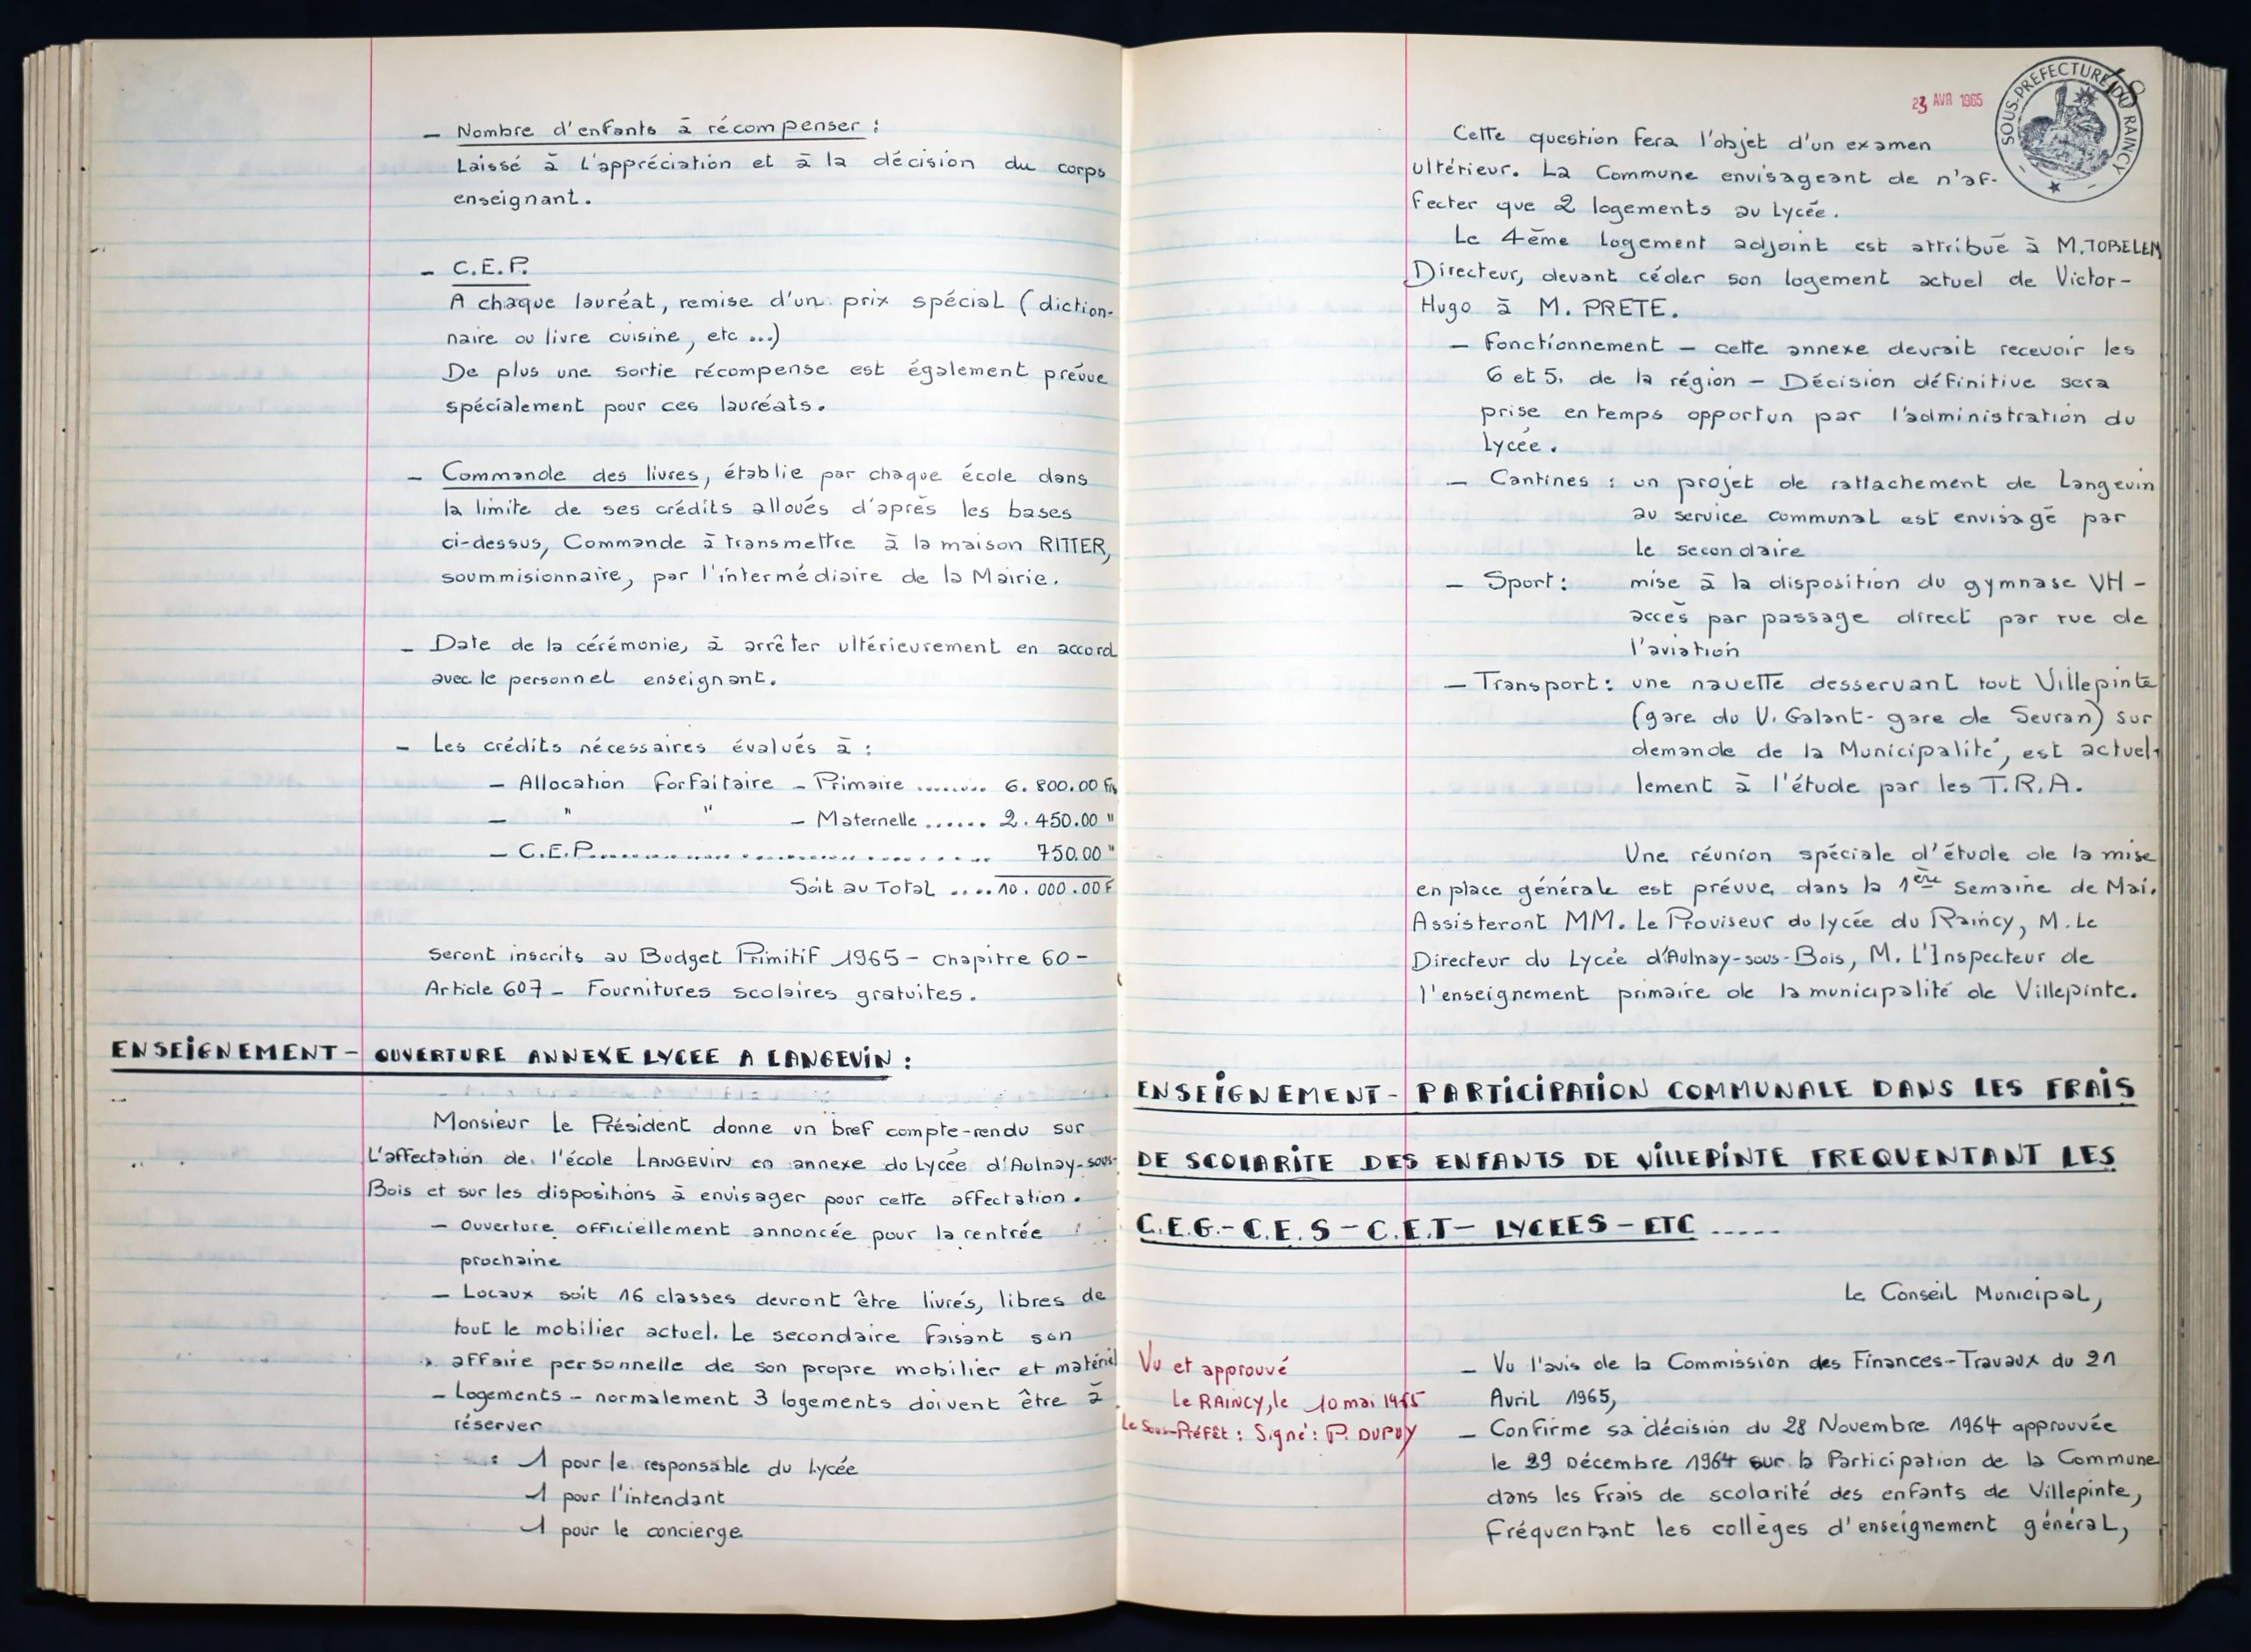 — Nombre d'enfants à récompenser :
Laissé à l'appréciation et à la décision du corps
enseignant.
— C.E.P.
A chaque lauréat, remise d'un prix spécial (diction-
naire ou livre cuisine, etc ...)
De plus une sortie récompense est également prévue
spécialement pour ces lauréats.
— Commande des livres, établie par chaque école dans
la limite de ses crédits alloués d'après les bases
ci-dessus, Commande à transmettre à la maison RITTER,
soummisionnaire, par l'intermédiaire de la Mairie.
— Date de la cérémonie, à arrêter ultérieurement en accord
avec le personnel enseignant.
— Les crédits nécessaires évalués à :
— Allocation Forfaitaire - Primaire ........ 6.800.00 Frs
— " " — Maternelle ...... 2.450.00 "
— C.E.P. .............................. 750.00 "
Soit au Total .... 10.000.00 F
seront inscrits au Budget Primitif 1965 - chapitre 60 -
Article 607 - Fournitures scolaires gratuites.
ENSEIGNEMENT - OUVERTURE ANNEXE LYCEE A LANGEVIN :
Monsieur le Président donne un bref compte-rendu sur
L'affectation de l'école LANGEVIN en annexe du Lycée d'Aulnay-sous-
Bois et sur les dispositions à envisager pour cette affectation.
— Ouverture officiellement annoncée pour la rentrée
prochaine
— Locaux soit 16 classes devront être livrés, libres de
tout le mobilier actuel. Le secondaire faisant son
affaire personnelle de son propre mobilier et matériel
— Logements - normalement 3 logements doivent être à
réserver
: 1 pour le responsable du Lycée
1 pour l'intendant
1 pour le concierge
23 AVR 1965
SOUS-PREFECTURE DU RAINCY
Cette question fera l'objet d'un examen
ultérieur. La Commune envisageant de n'af-
fecter que 2 logements au Lycée.
Le 4ème logement adjoint est attribué à M. TOBELEM
Directeur, devant céder son logement actuel de Victor-
Hugo à M. PRETE.
— Fonctionnement — cette annexe devrait recevoir les
6 et 5. de la région — Décision définitive sera
prise en temps opportun par l'administration du
Lycée.
— Cantines : un projet de rattachement de Langevin
au service communal est envisagé par
le secondaire
— Sport : mise à la disposition du gymnase VH -
accès par passage direct par rue de
l'aviation
— Transport : une navette desservant tout Villepinte
(gare du V. Galant - gare de Sevran) sur
demande de la Municipalité, est actuel-
lement à l'étude par les T.R.A.
Une réunion spéciale d'étude de la mise
en place générale est prévue dans la 1ère semaine de Mai.
Assisteront MM. Le Proviseur du lycée du Raincy, M. Le
Directeur du Lycée d'Aulnay-sous-Bois, M. L'Inspecteur de
l'enseignement primaire de la municipalité de Villepinte.
ENSEIGNEMENT - PARTICIPATION COMMUNALE DANS LES FRAIS
DE SCOLARITE DES ENFANTS DE VILLEPINTE FREQUENTANT LES
C.E.G. - C.E.S - C.E.T - LYCEES - ETC .....
Le Conseil Municipal,
Vu et approuvé
Le RAINCY, le 10 mai 1965
Le Sous-Préfêt : Signé : P. DUPUY
— Vu l'avis de la Commission des Finances-Travaux du 21
Avril 1965,
— Confirme sa décision du 28 Novembre 1964 approuvée
le 29 Décembre 1964 sur la Participation de la Commune
dans les frais de scolarité des enfants de Villepinte,
fréquentant les collèges d'enseignement général,